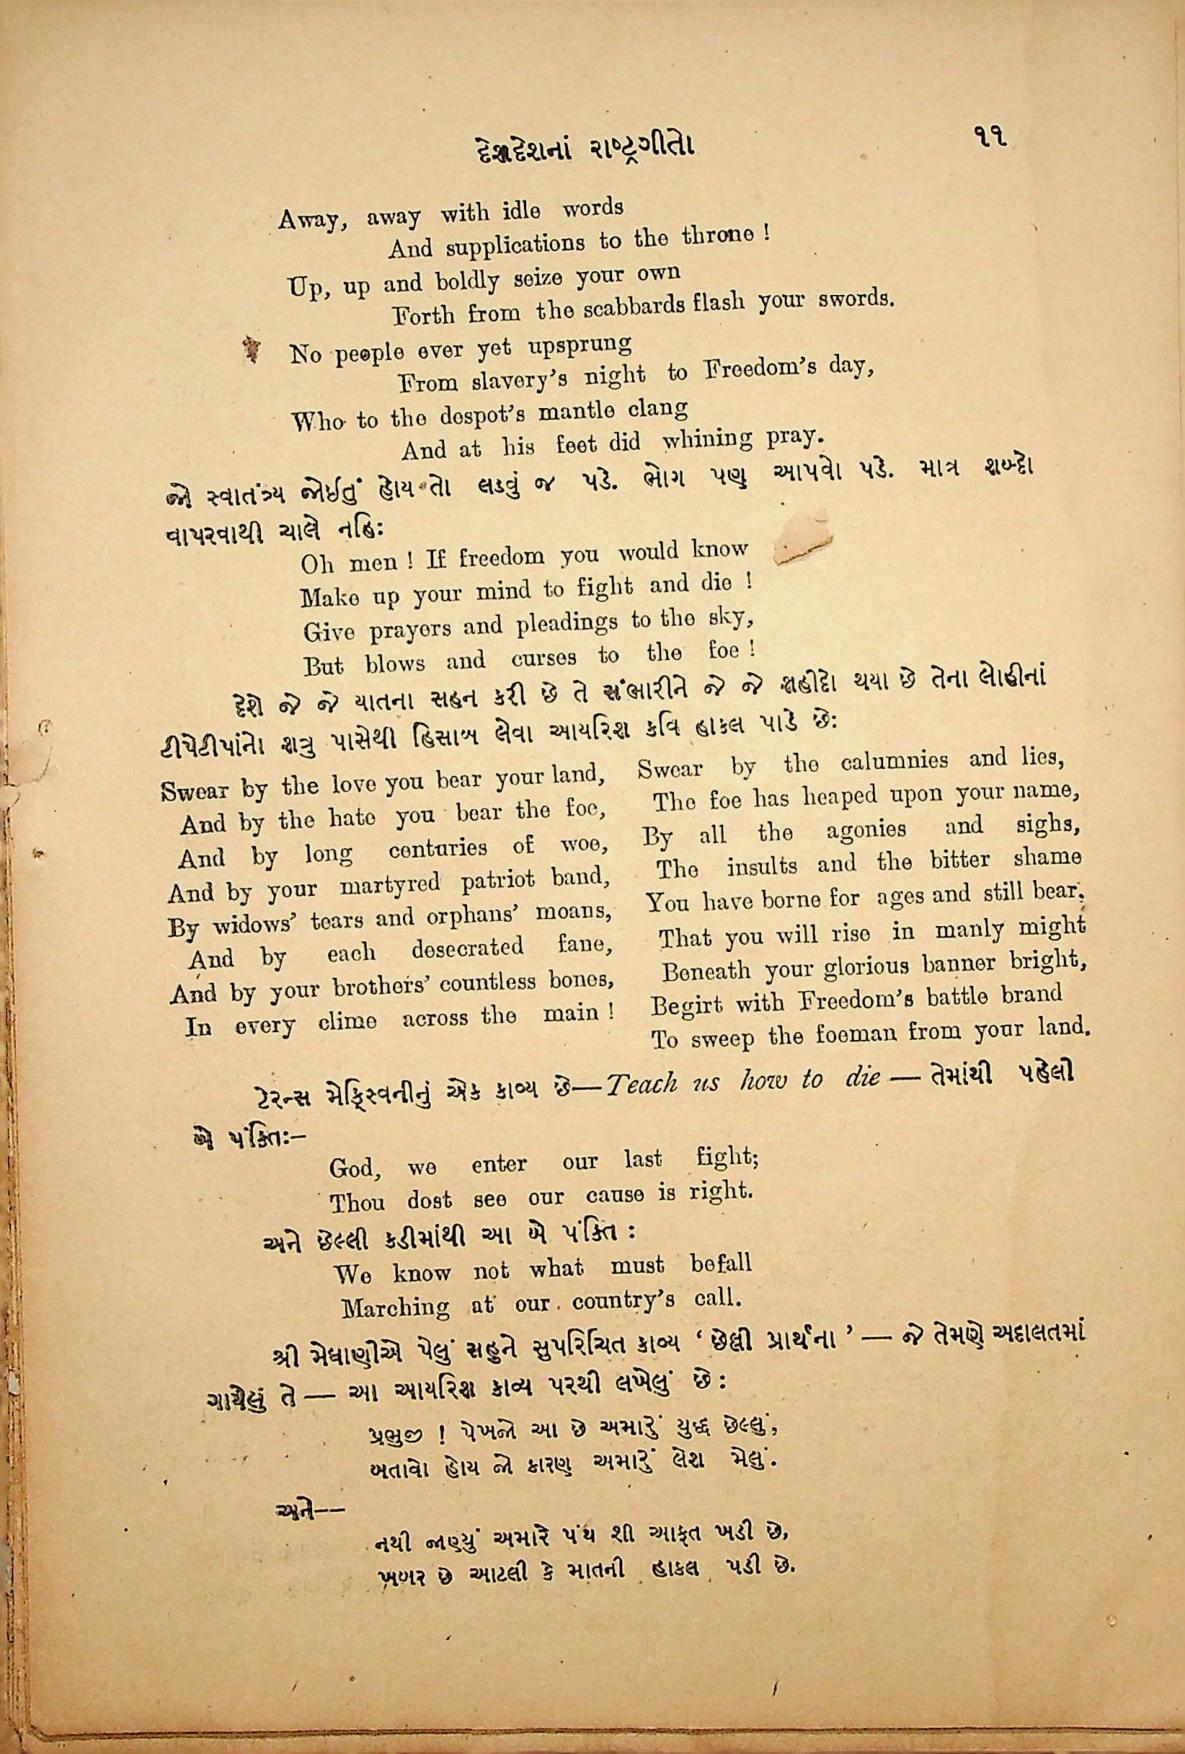 દેશદેશનાં રાષ્ટ્રગીતો ૧૧
Away, away with idle words
And supplications to the throne !
Up, up and boldly seize your own
Forth from the scabbards flash your swords.
No people ever yet upsprung
From slavery's night to Freedom's day,
Who to the despot's mantle clang
And at his feet did whining pray.
જો સ્વાતંત્ર્ય જોઈતું હોય તો લડવું જ પડે. ભોગ પણ આપવો પડે. માત્ર શબ્દો
વાપરવાથી ચાલે નહિ:
Oh men ! If freedom you would know
Make up your mind to fight and die !
Give prayers and pleadings to the sky,
But blows and curses to the foe !
દેશે જે જે યાતના સહન કરી છે તે સંભારીને જે જે શહીદો થયા છે તેના લોહીનાં
ટીપેટીપાંનો શત્રુ પાસેથી હિસાબ લેવા આયરિશ કવિ હાકલ પાડે છે:
Swear by the love you bear your land,
And by the hate you bear the foe,
And by long centuries of woe,
And by your martyred patriot band,
By widows' tears and orphans' moans,
And by each desecrated fane,
And by your brothers' countless bones,
In every clime across the main !
Swear by the calumnies and lies,
The foe has heaped upon your name,
By all the agonies and sighs,
The insults and the bitter shame
You have borne for ages and still bear,
That you will rise in manly might
Beneath your glorious banner bright,
Begirt with Freedom's battle brand
To sweep the foeman from your land.
ટેરન્સ મેક્સ્વિનીનું એક કાવ્ય છે—Teach us how to die — તેમાંથી પહેલી
બે પંક્તિ:–
God, we enter our last fight;
Thou dost see our cause is right.
અને છેલ્લી કડીમાંથી આ બે પંક્તિ :
We know not what must befall
Marching at our country's call.
શ્રી મેઘાણીએ પેલું સહુને સુપરિચિત કાવ્ય ‘ છેલ્લી પ્રાર્થના ’ — જે તેમણે અદાલતમાં
ગાયેલું તે — આ આયરિશ કાવ્ય પરથી લખેલું છે :
પ્રભુજી ! પેખજો આ છે અમારું યુદ્ધ છેલ્લું,
બતાવો હોય જો કારણ અમારું લેશ મેલું.
અને——
નથી જાણ્યું અમારે પંથ શી આફત ખડી છે,
ખબર છે આટલી કે માતની હાકલ પડી છે.